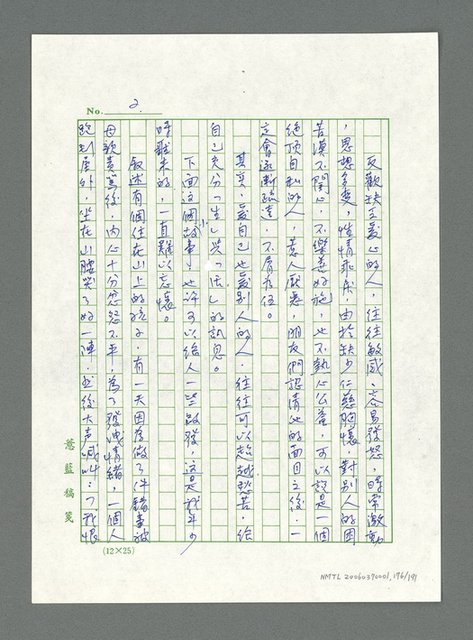 No. 2.
反觀缺乏愛心的人，往往敏感、容易發怒，時常激動
，思想多變，性情乖戾，由於缺少仁慈胸懷，對別人的困
苦漠不關心，不樂善好施，也不熱心公益，可以說是一個
絕頂自私的人，惹人厭惡，朋友們認清他的面目之後，一
定會逐漸疏遠，不屑為伍。
其實，愛自己也愛別人的人，往往可以超越愁苦，給
自己充分「生」與「活」的訊息。
下面這個小故事，也許可以給人一些啟發，這是我年少
時聽來的，一直難以忘懷。
敘述有個住在山上的孩子，有一天因為做了件錯事被
母親責罵後，內心十分忿怒不平，為了發洩情緒，一個人
跑到屋外，坐在山腰哭了好一陣，然後大声喊叫：「我恨
慧藍稿箋
(12×25)
NMTL 20060390001, 176/191